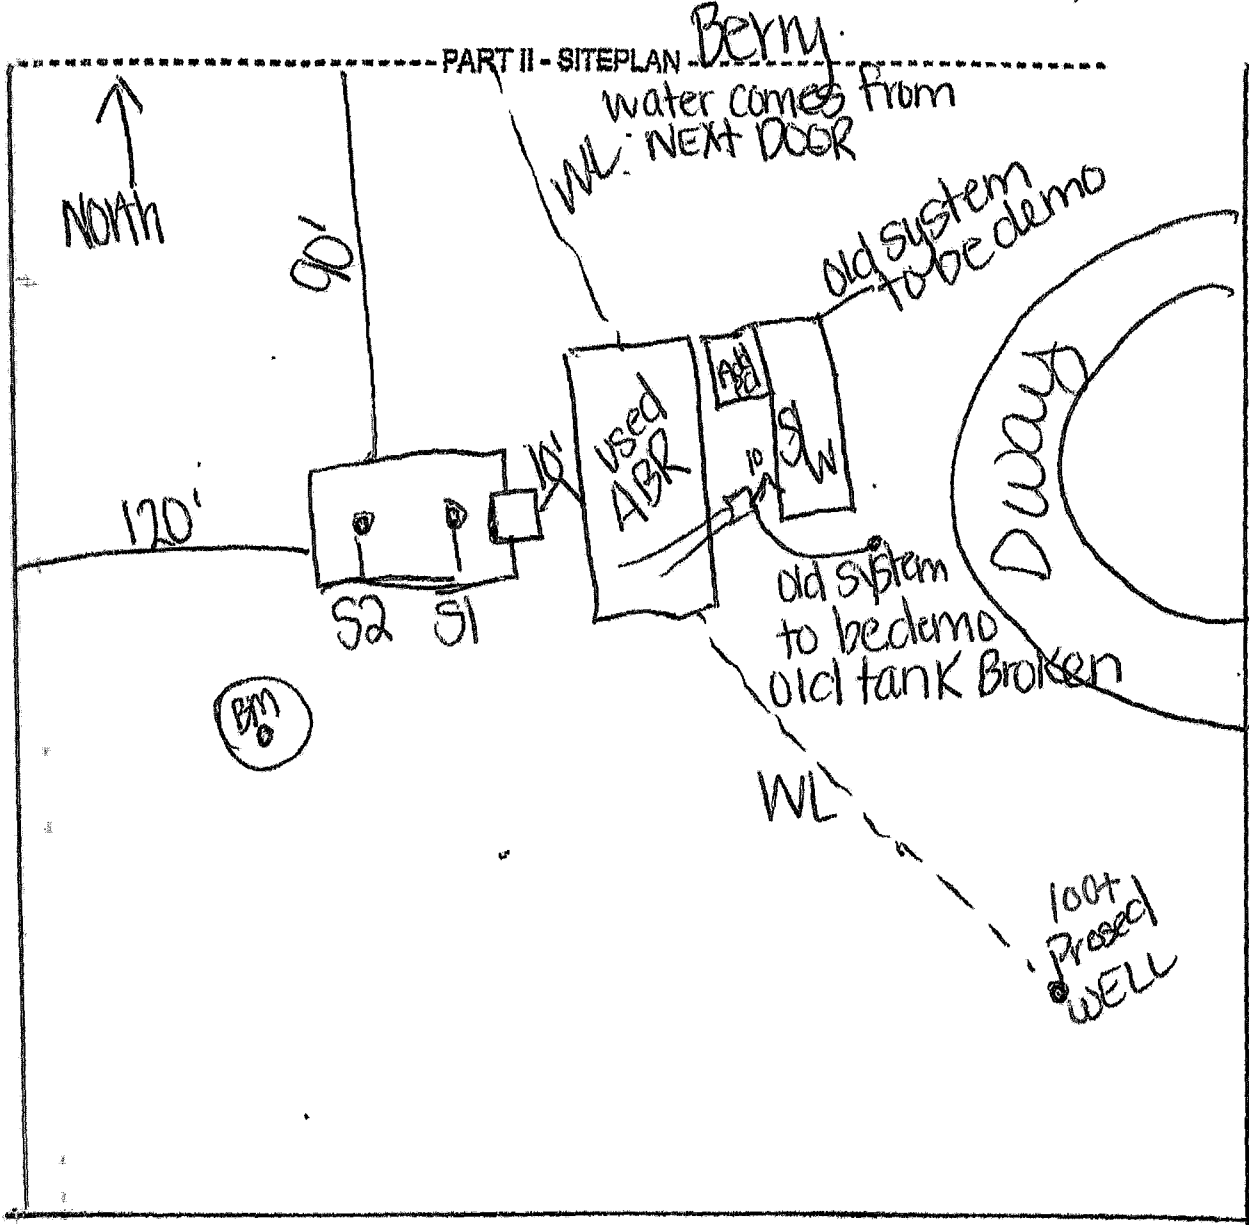 Berry.
PART II - SITEPLAN
water comes from
NEXT DOOR
WL
North
90'
old system
to be demo
Dway
used
ABR
SW
10'
10
120'
S2
S1
old system
to be demo
old tank Broken
BM
WL
100+
Prosed
WELL